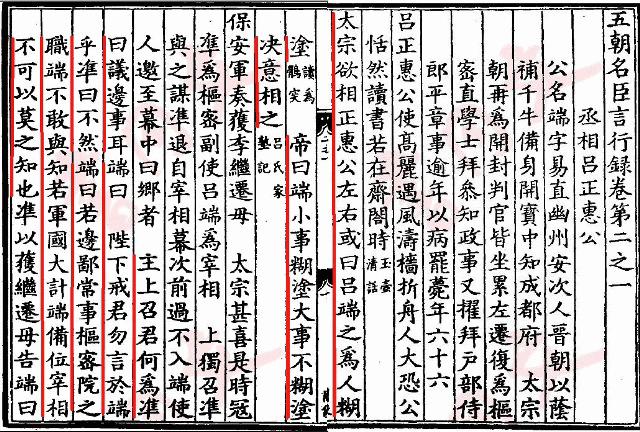 五朝名臣言行錄卷第二之一
丞相呂正惠公
公名端字易直幽州安次人晉朝以蔭
補千牛備身開寶中知成都府 太宗
朝再爲開封判官皆坐累左遷復爲樞
密直學士拜叅知政事又擢拜戸部侍
郎平章事逾年以病罷薨年六十六
呂正惠公使髙麗遇風濤檣折舟人大恐公
恬然讀書若在齋閤時 玉壺清話
太宗欲相正惠公左右或曰呂端之爲人糊
塗 讀爲鶻突 帝曰端小事糊塗大事不糊塗
决意相之 呂氏家塾記
保安軍奏獲李繼遷母 太宗甚喜是時寇
準爲樞密副使呂端爲宰相 上獨召準
與之謀準退自宰相幕次前過不入端使
人邀至幕中曰鄉者 主上召君何爲準
曰議邊事耳端曰 陛下戒君勿言於端
乎準曰不然端曰若邊鄙常事樞密院之
職端不敢與知若軍國大計端備位宰相
不可以莫之知也準以獲繼遷母告端曰